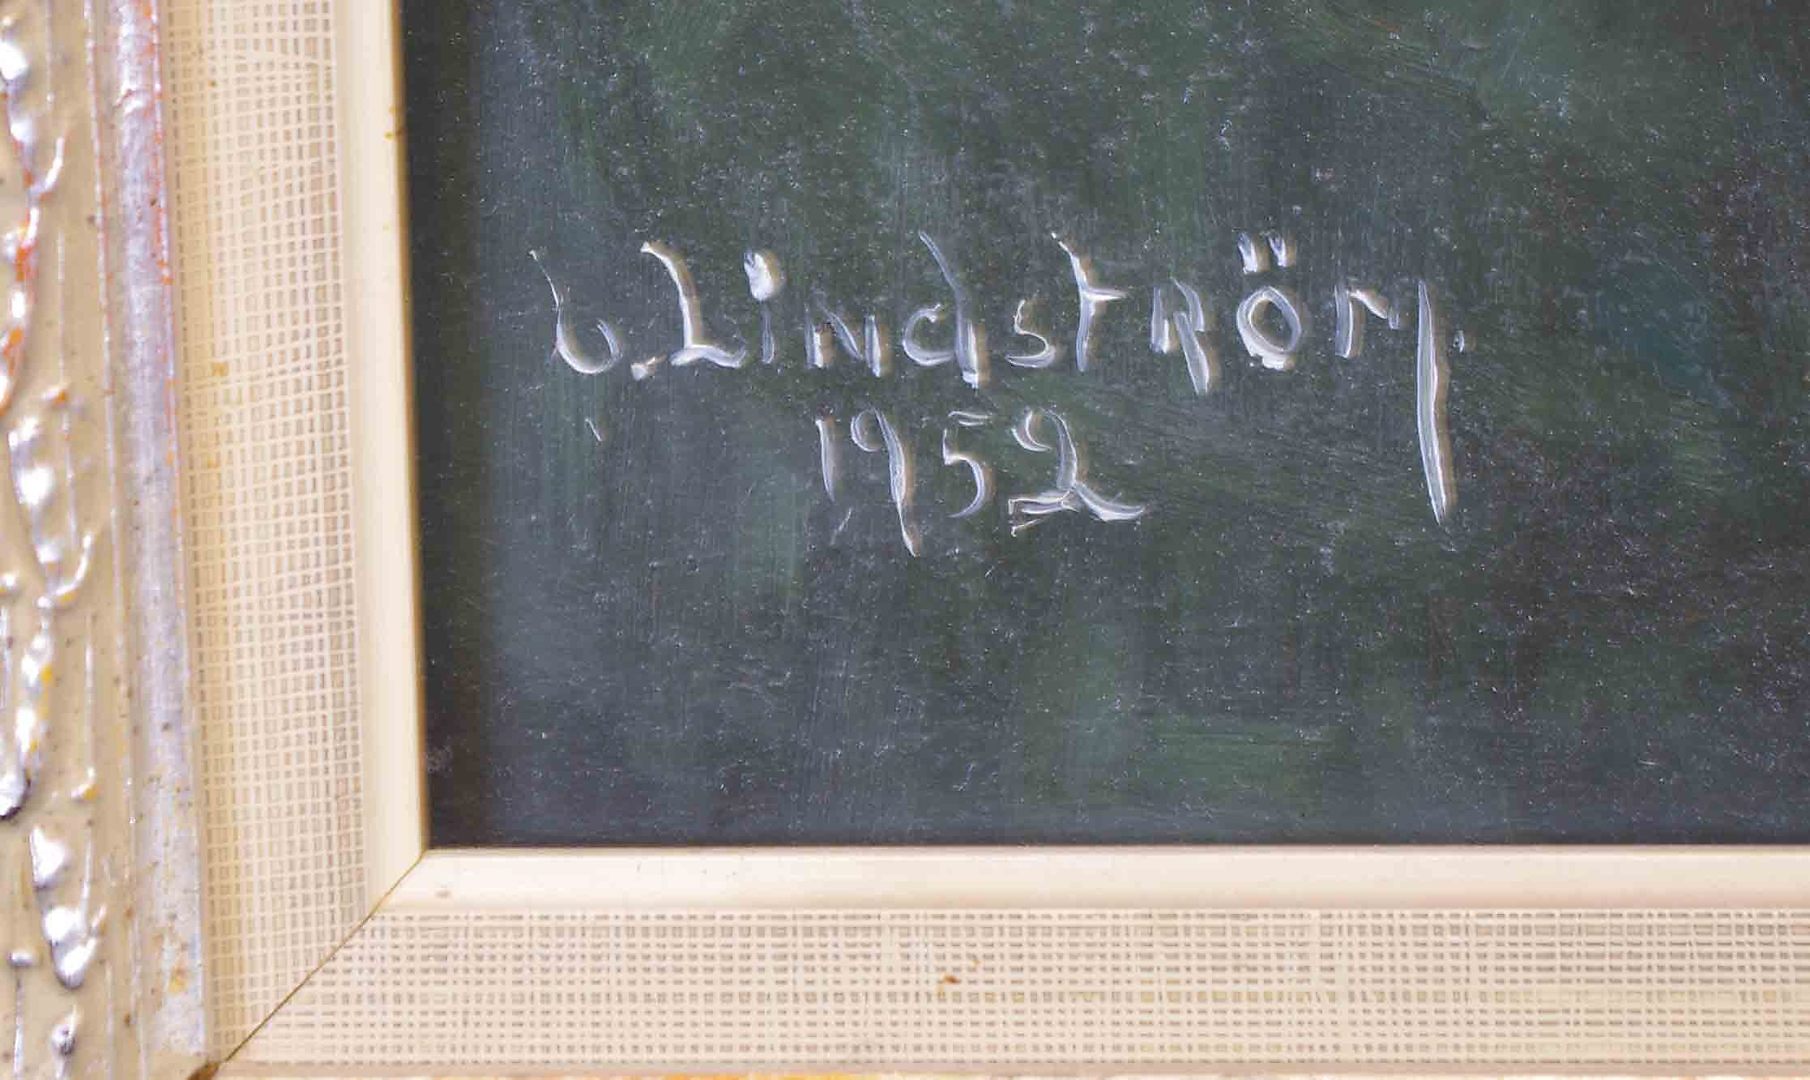 b. Lindström.
1952